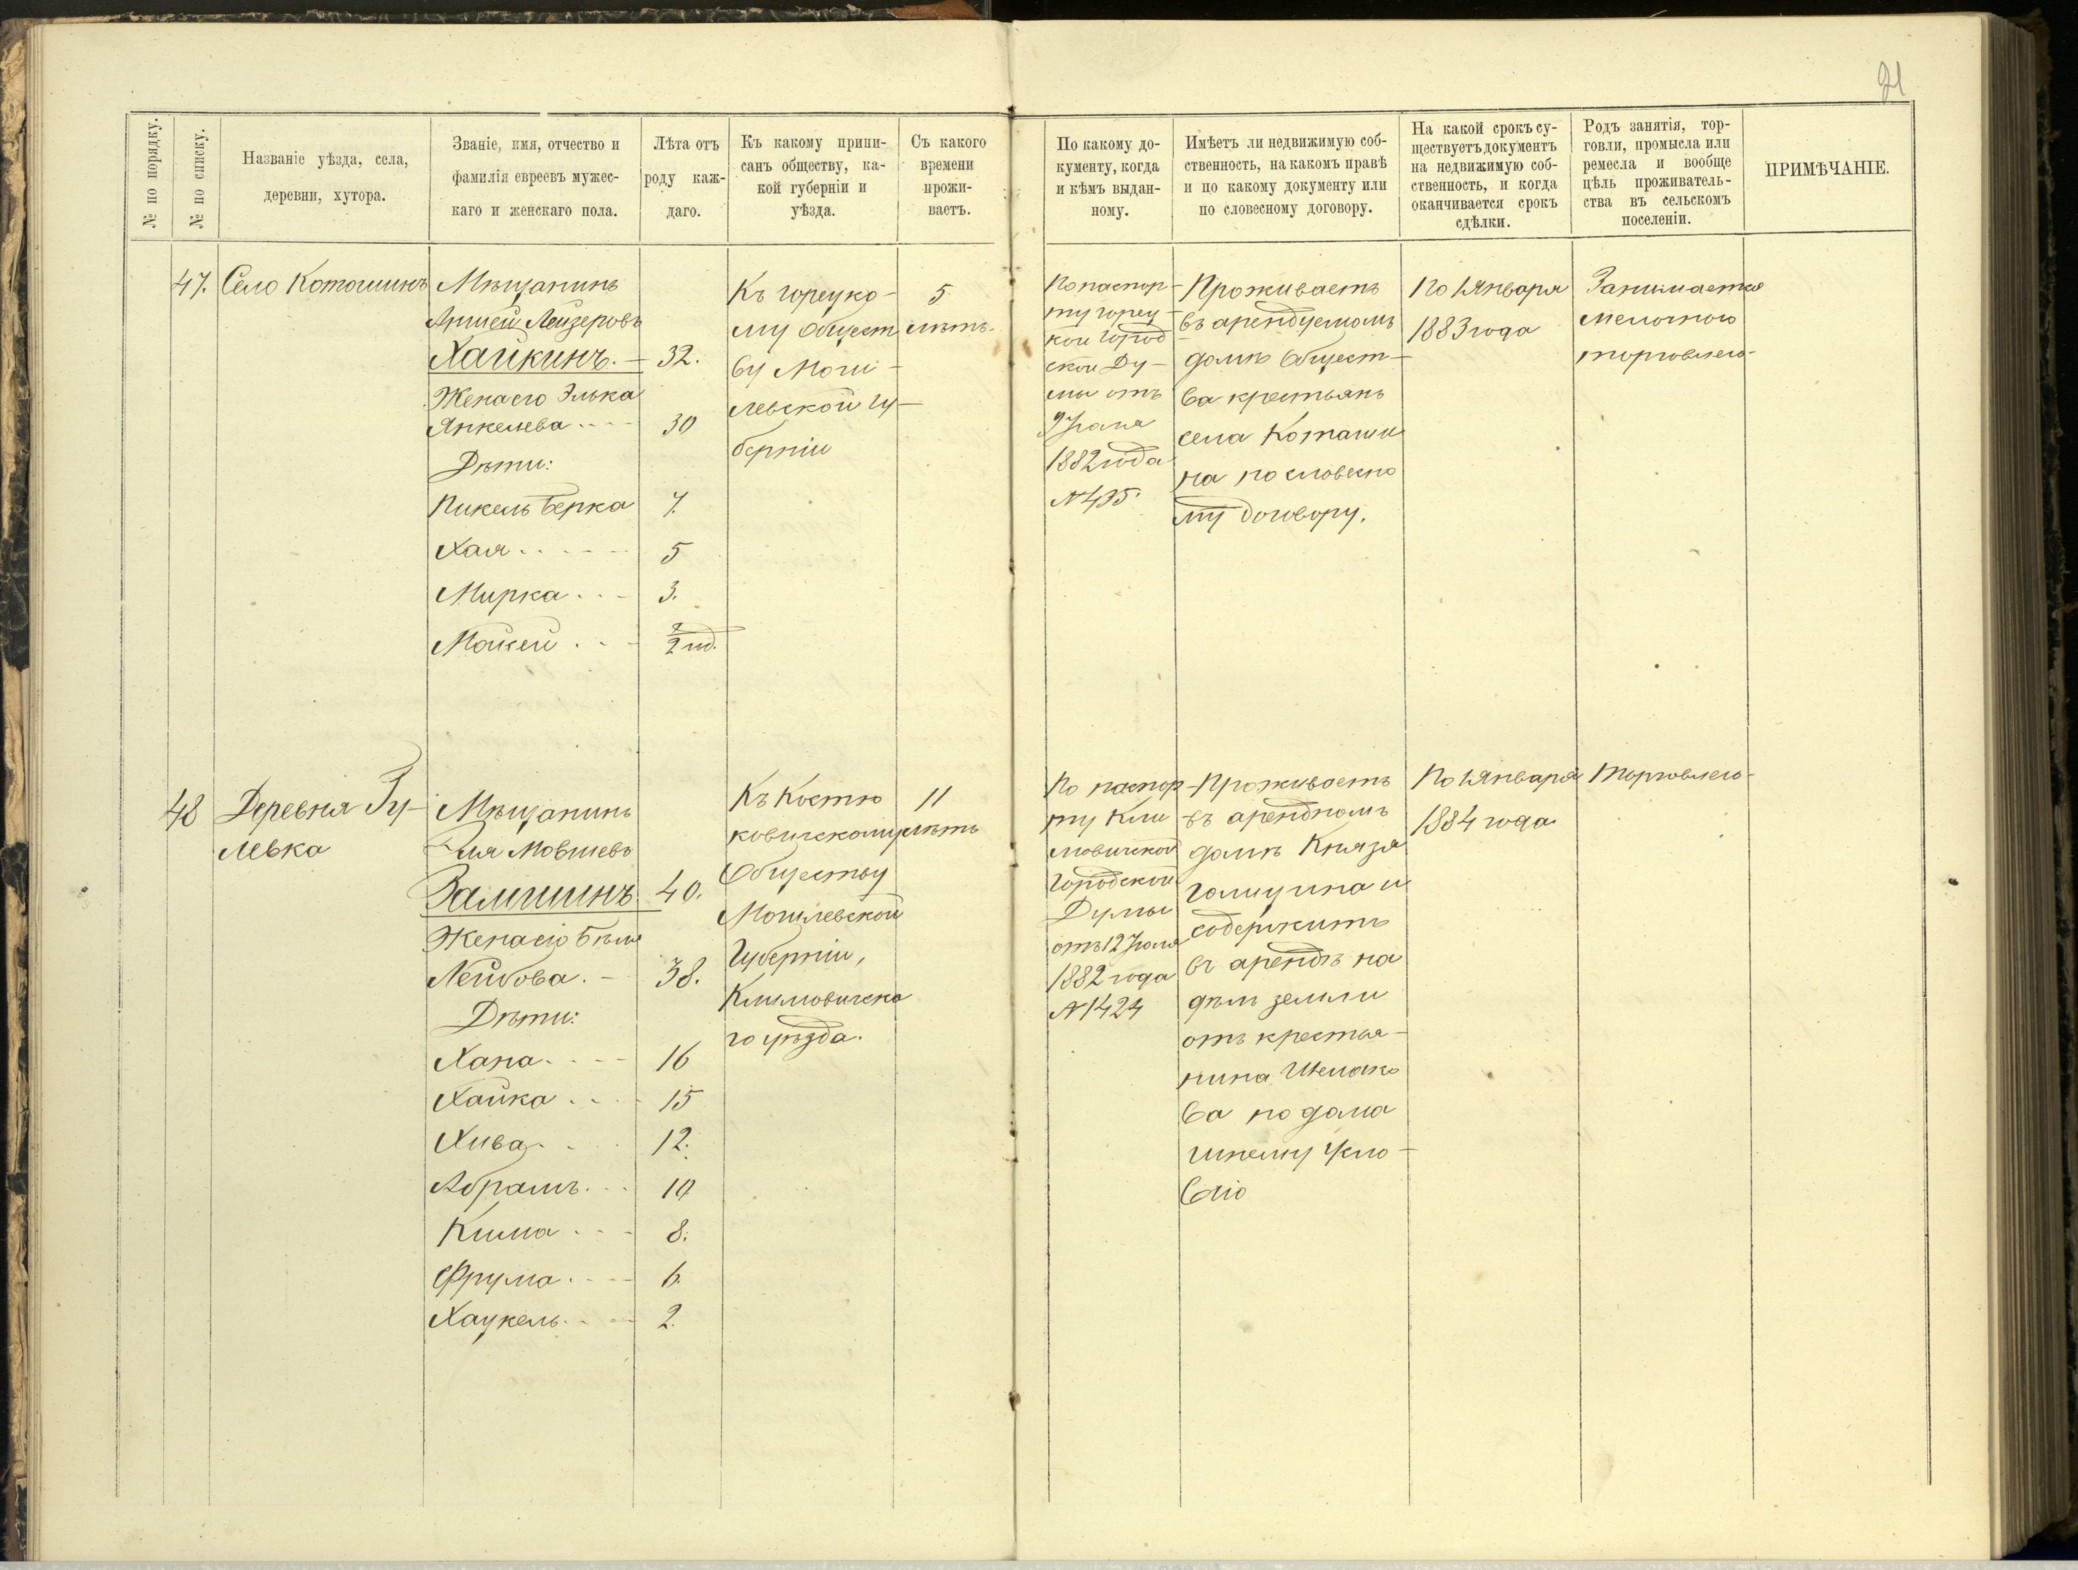 21
№ по порядку.
№ по списку.
Названіе уѣзда, села,
деревни, хутора.
Званіе, имя, отчество и
фамилія евреевъ мужес-
каго и женскаго пола.
Лѣта отъ
роду каж-
даго.
Къ какому припи-
санъ обществу, ка-
кой губерніи и
уѣзда.
Съ какого
времени
прожи-
ваетъ.
По какому до-
кументу, когда
и кѣмъ выдан-
ному.
Имѣетъ ли недвижимую соб-
ственность, на какомъ правѣ
и по какому документу или
по словесному договору.
На какой срокъ су-
ществуетъ документъ
на недвижимую соб-
ственность, и когда
оканчивается срокъ
сдѣлки.
Родъ занятія, тор-
говли, промысла или
ремесла и вообще
цѣль проживатель-
ства въ сельскомъ
поселеніи.
ПРИМѢЧАНІЕ.
47.
Село Котошинъ
Мѣщанинъ
Лейзеровъ
Хайкинъ. —
Жена его Элька
Янкелева
Дѣти:
Берка
Хая
Мирка
32.
30
7.
5
3.
Къ горецко-
му Общест
ву Моги-
левской гу-
берніи
5
лѣтъ.
По паспор-
ту горец-
кой город
ской Ду-
мы отъ
9 Іюля
1882 года
№ 435.
Проживаетъ
въ арендуемомъ
домѣ Общест-
ва крестьянъ
села Коташи
на по словесно
му договору.
По 1 Января
1883 года
Занимается
мелочною
торговлею
48
Деревня Гу-
левка
Мѣщанинъ
Мовшевъ
Залишинъ
Жена его Бѣля
Лейбова. —
Дѣти:
Хана
Хайка
Хива
Абрамъ
Фрума
Хацкель
40.
38.
16
15
12.
10
8.
6.
2.
Къ Костю
ковическому
Обществу
Могилевской
Губерніи,
Климовичска
го уѣзда.
11
лѣтъ
По паспор
ту Кли
мовичской
Городской
Думы
отъ 12 Іюля
1882 года
№ 1424
Проживаетъ
въ арендномъ
домѣ Князя
Голицина и
содержитъ
въ арендѣ на
дѣлъ земли
отъ крестья-
нина
ва по дома
шнему Усло-
вію
По 1 Января
1884 года
Торговлею